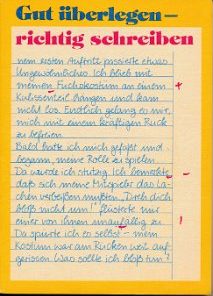 Gut überlegen –
richtig schreiben
nem ersten Auftritt passierte etwas
Ungewöhnliches. Ich blieb mit
meinen Fuchskostüm an einem
Kulissenteil hängen und kam
nicht los. Endlich gelang es mir,
mich mit einem kräftigen Ruck
zu befreien.
Bald hatte ich mich gefaßt und
begann, meine Rolle zu spielen.
Da wurde ich stutzig. Ich bemerkte
daß sich meine Mitspieler das La-
chen verbeißen mußten. "Dreh dich
bloß nicht um!" flüsterte mir
einer von ihnen unauffällig zu.
Da spürte ich es selbst – mein
Kostüm war am Rücken weit auf-
gerissen. Was sollte ich bloß tun?